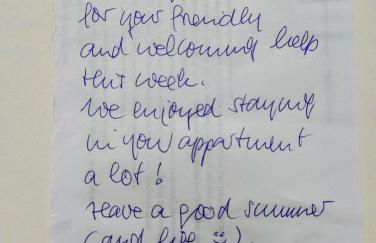 for your friendly
and welcoming help
this week.
We enjoyed staying
in your appartment
a lot!
Have a good summer
(and life :)).